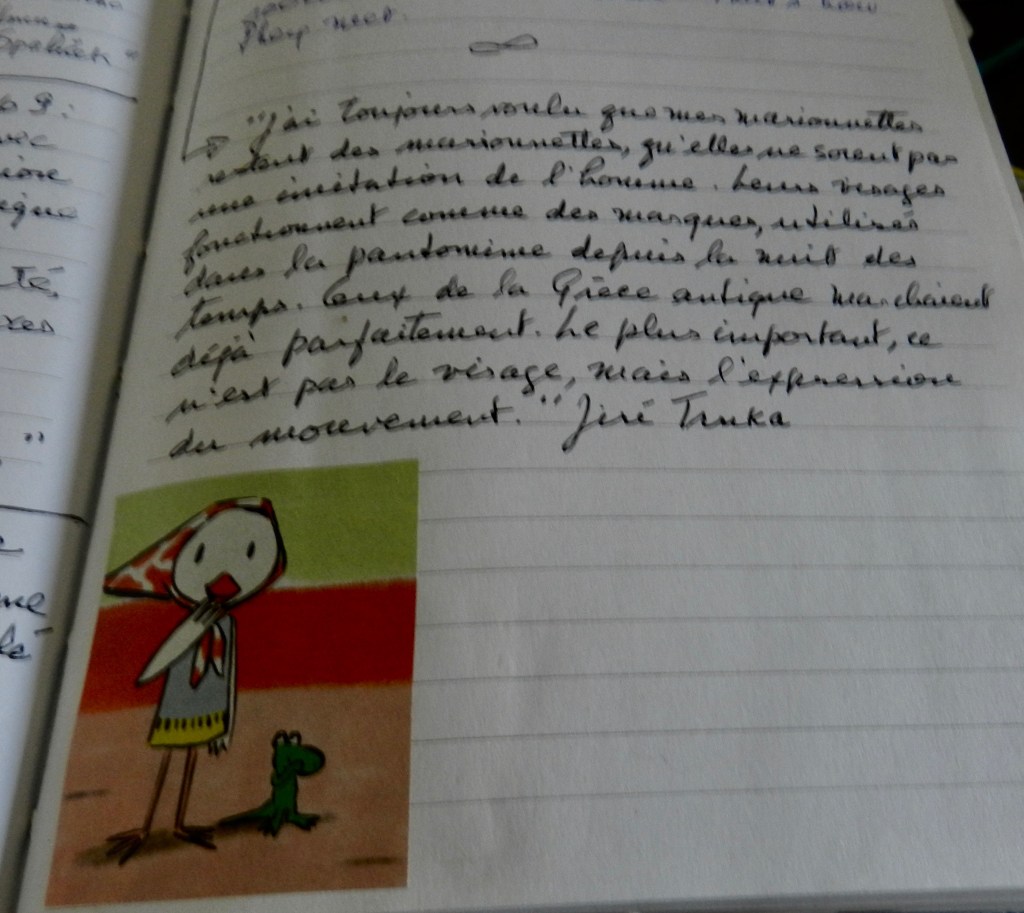 Opalien
09:
vec
"j'ai toujours voulu que mes marionnettes
restent des marionnettes, qu'elles ne soient pas
une imitation de l'homme. Leurs visages
fonctionnent comme des masques, utilisés
dans la pantomime depuis la nuit des
temps. Ceux de la Grèce antique marchaient
déjà parfaitement. Le plus important, ce
n'est pas le visage, mais l'expression
du mouvement." Jiri Trnka